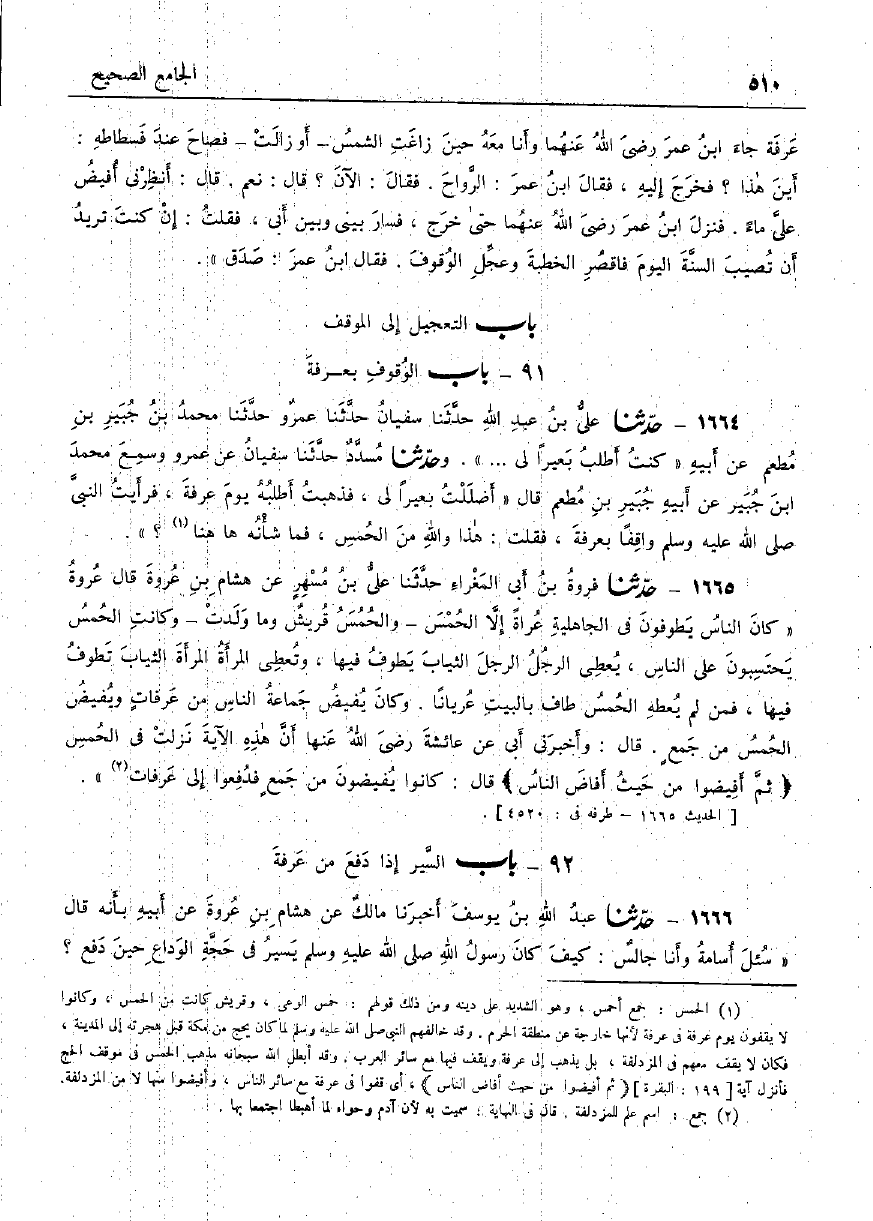 ٥١٠
الجامع الصحيح
عَرفَة جاءَ ابنُ عمرَ رضىَ اللهُ عَنهُما وأنا معَهُ حينَ زاغَتِ الشمسُ – أو زالَتْ – فصاحَ عندَ فُسطاطهِ :
أينَ هٰذا ؟ فخرَجَ إليهِ ، فقالَ ابنُ عمرَ : الرَّواحَ . فقالَ : الآنَ ؟ قال : نعم . قال : أَنظِرْنى أُفيضُ
علىَّ ماءً . فنزلَ ابنُ عمرَ رضىَ اللهُ عنهُما حتىٰ خرَج ، فسارَ بينى وبين أبى ، فقلتُ : إنْ كنتَ تريدُ
أن تُصيبَ السنَّةَ اليومَ فاقصُرِ الخطبةَ وعجِّلِ الوُقوفَ . فقال ابنُ عمرَ : صَدَق » .
باب التعجيل إلى الموقف
٩١ – باب الوُقوفِ بعرفةَ
١٦٦٤ – حدّثنا علىُّ بنُ عبدِ اللهِ حدَّثَنا سفيانُ حدَّثَنا عمرٌو حدَّثَنا محمدُ بنُ جُبَيرِ بنِ
مُطعمٍ عن أبيهِ « كنتُ أطلبُ بَعيراً لى ... » . وحدّثنا مُسدَّدٌ حدَّثَنا سفيانُ عن عمرو وسمِعَ محمدَ
ابنَ جُبَيرٍ عن أبيهِ جُبَيرِ بنِ مُطعم قال « أضلَلْتُ بعيراً لى ، فذهبتُ أطلبُهُ يومَ عرفةَ ، فرأيتُ النبىَّ
صلى الله عليه وسلم واقِفًا بعرفةَ ، فقلت : هٰذا واللهِ منَ الحُمسِ ، فما شأنُه ها هنا (١) ؟ » .
١٦٦٥ – حدّثنا فروةُ بنُ أبى المَغْراءِ حدَّثَنا علىُّ بنُ مُسْهِرٍ عن هشامِ بنِ عُروةَ قال عُروةُ
« كانَ الناسُ يَطوفونَ فى الجاهليةِ عُراةً إلَّا الحُمْسَ – والحُمْسُ قُريشٌ وما وَلَدتْ – وكانتِ الحُمسُ
يَحتَسِبونَ على الناسِ ، يُعطِى الرجُلُ الرجلَ الثيابَ يَطوفُ فيها ، وتُعطِى المرأةُ المرأةَ الثيابَ تَطوفُ
فيها ، فمن لم يُعطهِ الحُمسُ طاف بالبيتِ عُريانًا . وكانَ يُفيضُ جَماعةُ الناسِ من عَرفاتٍ ويُفيضُ
الحُمسُ من جَمعٍ . قال : وأخبرَنى أبى عن عائشةَ رضىَ اللهُ عَنها أنَّ هٰذِهِ الآيةَ نَزلَتْ فى الحُمسِ
﴿ ثمَّ أَفِيضوا من حَيثُ أفاضَ الناسُ ﴾ قال : كانوا يُفيضونَ من جَمعٍ فدُفِعوا إلى عَرفات (٢) » .
[ الحديث ١٦٦٥ – طرفه فى : ٤٥٢٠ ] .
٩٢ – باب السَّيرِ إذا دَفعَ من عَرفةَ
١٦٦٦ – حدّثنا عبدُ اللهِ بنُ يوسفَ أخبرَنا مالكٌ عن هشامِ بنِ عُروةَ عن أبيهِ بأنه قال
« سُئلَ أسامةُ وأنا جالسٌ : كيفَ كانَ رسولُ اللهِ صلى الله عليهِ وسلم يَسيرُ فى حَجَّةِ الوَداعِ حينَ دَفع ؟
(١) الحمس : جمع أحمس ، وهو الشديد على دينه ومن ذلك قولهم : حمس الوغى ، وقريش كانت من الحمس ، وكانوا
لا يقفون يوم عرفة فى عرفة لأنها خارجة عن منطقة الحرم . وقد خالفهم النبى صلى الله عليه وسلم لما كان يحج من مكة قبل هجرته إلى المدينة ،
فكان لا يقف معهم فى المزدلفة ، بل يذهب إلى عرفة ويقف فيها مع سائر العرب . وقد أبطل الله سبحانه مذهب الحمس فى موقف الحج
فأنزل آية [ ١٩٩ : البقرة ] ﴿ ثم أفيضوا من حيث أفاض الناس ﴾ ، أى قفوا فى عرفة مع سائر الناس ، وأفيضوا منها لا من المزدلفة.
(٢) جمع : اسم علم للمزدلفة . قال فى النهاية : سميت به لأن آدم وحواء لما أهبطا اجتمعا بها .